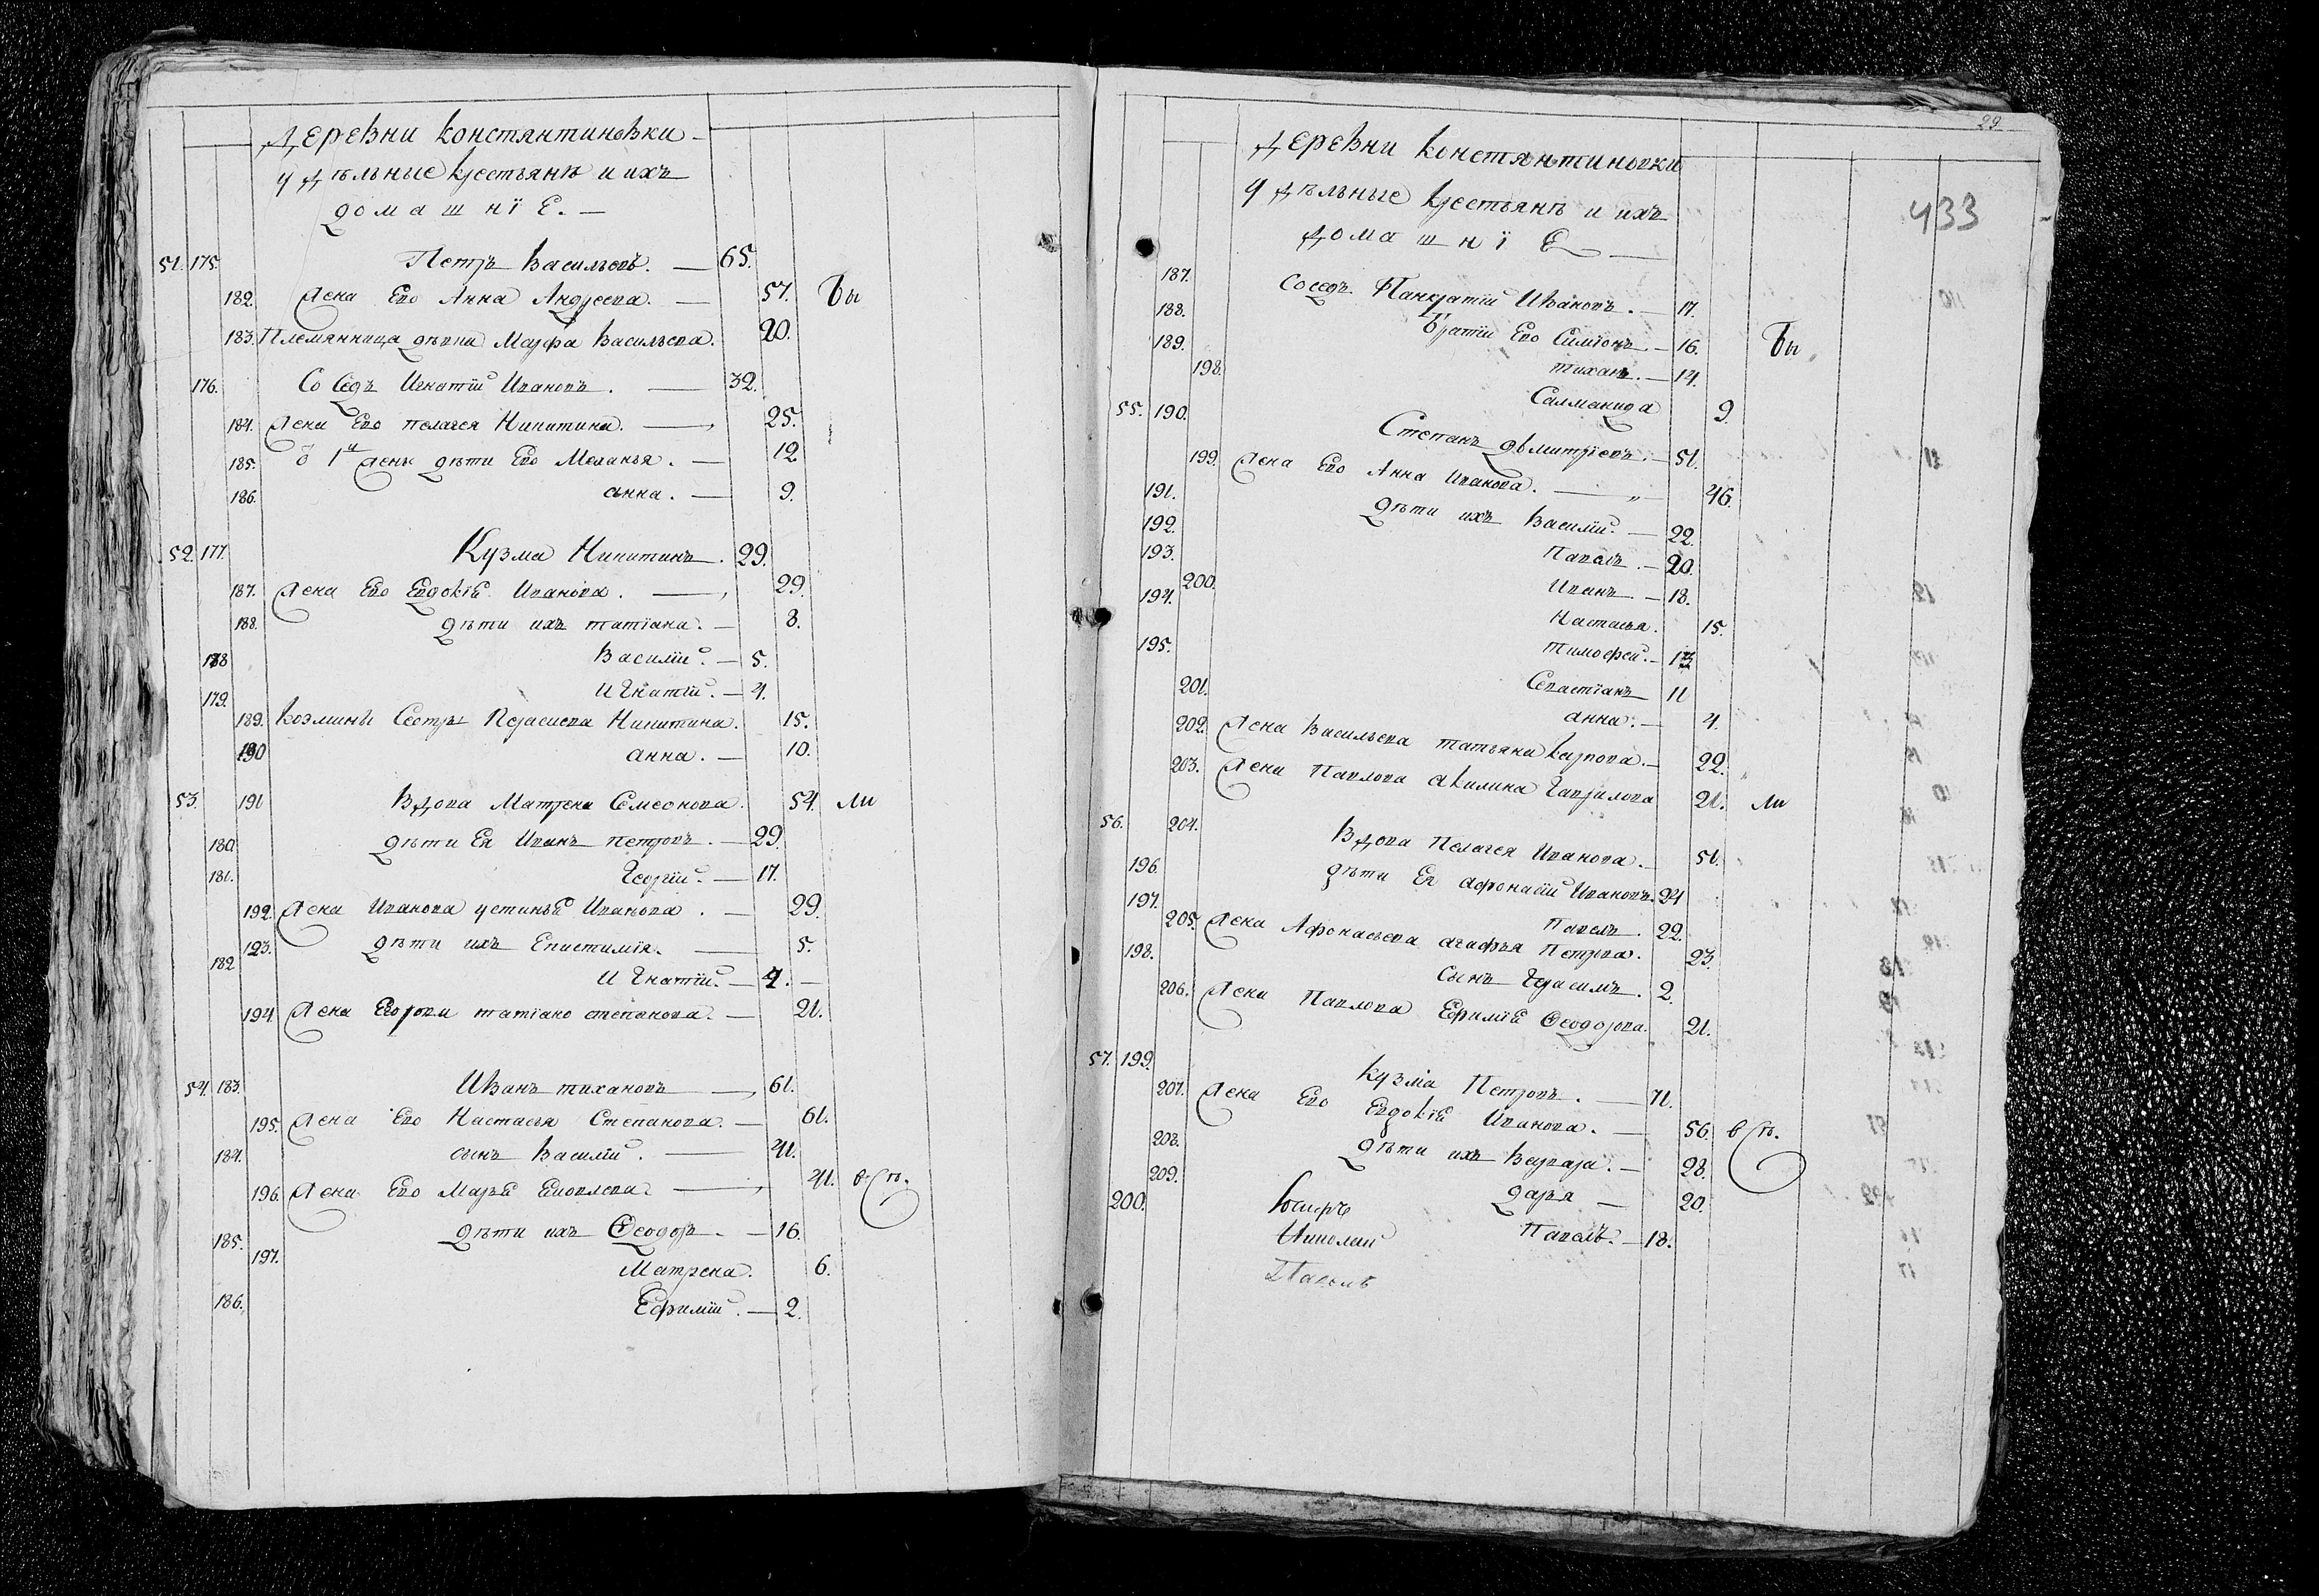 Деревни Констянтиновки
удѣльные крестьянѣ и ихъ
домашнїе.
51. 175. Петръ Васильевъ. 65.
182. Жена Его Анна Андреева. 57. Бы
183. Племянница дѣвка Марфа Васильева. 20.
176. Соседъ Игнатїй Ивановъ. 32.
184. Жена Его пелагея Никитина. 25.
185. Ѿ 1й жены дѣти Его Меланья. 12
186. анна. 9.
52. 177. Кузма Никитинъ. 29.
187. Жена Его Евдокїя Иванова. 29.
188. дѣти ихъ татїана. 8.
178 Василїй. 5.
179. Игнатїй. 4.
189. Козмины Сестры Прасковья Никитина. 15.
190 анна. 10.
53. 191 Вдова Матрена Семеонова. 54. Ли
180 дѣти Ея Иванъ петровъ. 29.
181. Георгїй. 17.
192. Жена Иванова устинья Иванова. 29.
193. дѣти ихъ Епистимїя. 5.
182 Игнатїй. 4.
194. Жена Егорова татїана степанова. 21.
54. 183. Иванъ тихановъ 61.
195. Жена Его Настасья Степанова. 61.
184. сынъ Василїй. 41.
196. Жена Его Марья 41. в Ст.
185. дѣти ихъ Ѳеодоръ. 16.
197. Матрена. 6.
186. Ефимїй. 2.
29
433
Деревни Констянтиновки
удѣльные крестьянѣ и ихъ
домашнїе
187. Соседъ Панкратїй Ивановъ. 17.
188. братїи Его Симїонъ. 16. Бы
189. тиханъ. 14.
198. Саламанида 9.
55. 190. Степанъ дмитрїевъ. 51.
199. Жена Его Анна Иванова. 46.
191. дѣти ихъ Василїй. 22.
192. Павелъ. 20.
193. Иванъ. 18.
200. Настасья. 15.
194. тимофей. 13
195. Севастїанъ 11
201. анна. 4.
202. Жена Васильева татьяна Карпова. 22.
203. Жена Павлова акилина Гаврилова 21. Ли
56. 204. Вдова Пелагея Иванова. 51.
196. дѣти Ея афонасїй Ивановъ. 24
197. Павелъ. 22.
205. Жена Афонасьева агафья Петрова. 23.
198. Сынъ Герасимъ. 2.
206. Жена Павлова Ефимїя Ѳеодорова. 21.
57. 199. Кузма Петровъ. 71.
207. Жена Его Евдокїя Иванова. 56. в Ст.
208. дѣти ихъ Варвара. 28.
209. дарья 20.
200. Павелъ. 18.
Николай
Павелъ